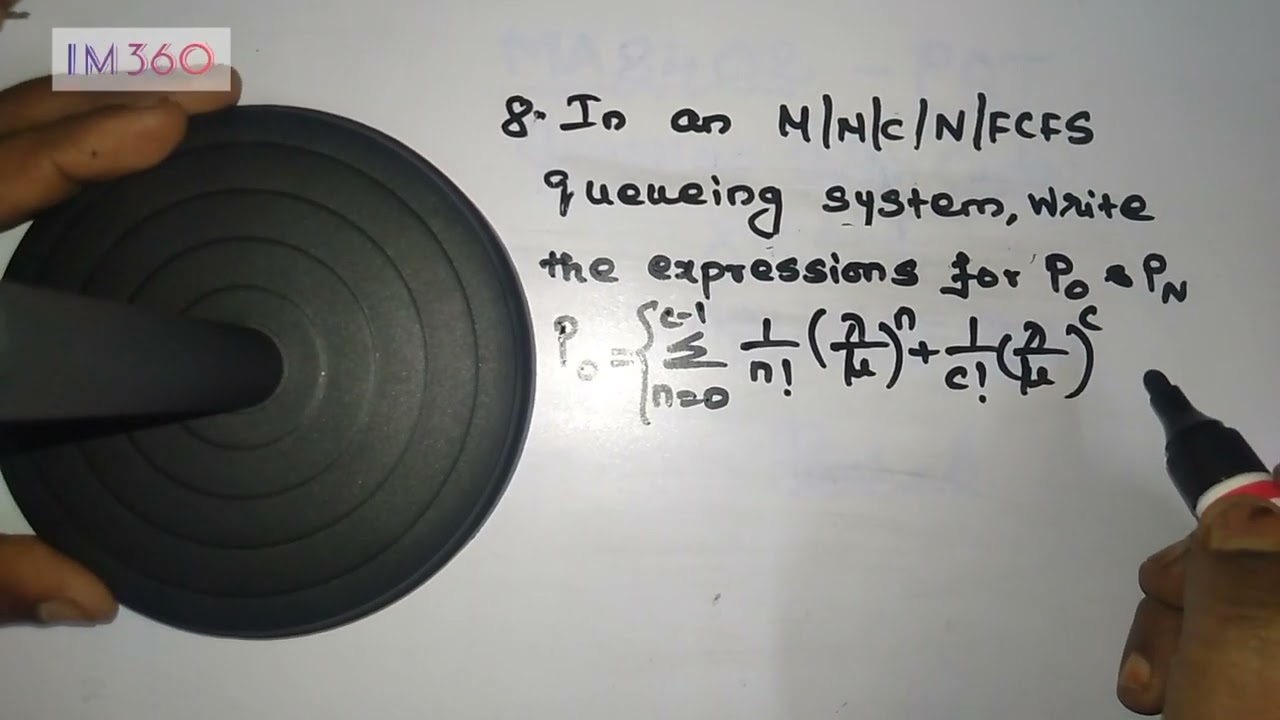 IM360
8. In an M/M/C/N/FCFS
queueing system, write
the expressions for P₀ & P_N
P₀ = { c-1 Σ n=0 1/n! (λ/μ)ⁿ + 1/c! (λ/μ)ᶜ